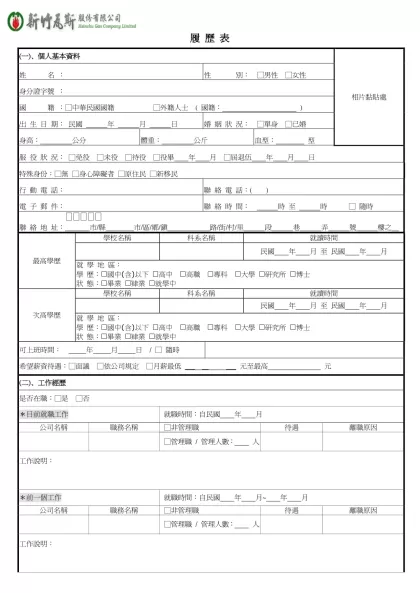 新竹瓦斯 股份有限公司
Hsinchu Gas Company Limited
履 歷 表
(一)、個人基本資料
姓 名 ： 性 別： □男性 □女性
相片黏貼處
身分證字號 ：
國 籍 ：□中華民國國籍 □外籍人士 ( 國籍：____ )
出 生 日 期： 民國 ____年____月____日 婚 姻 狀 況： □單身 □已婚
身高：____公分 體重：____公斤 血型：____ 型
服 役 狀 況： □免役 □未役 □待役 □役畢___年___月 □屆退伍___年___月___日
特殊身份：□無 □身心障礙者 □原住民 □新移民
行 動 電 話： 聯 絡 電 話：( )
電 子 郵 件： 聯 絡 時 間： ____時 至 ____時 □ 隨時
□□□□□
聯 絡 地 址：____市/縣____市/區/鄉/鎮____路/街/村/里____段____巷____弄____號____樓之__
最高學歷
學校名稱 科系名稱 就讀時間
民國___年___月 至 民國___年___月
就 學 地 區：
學 歷：□國中(含)以下 □高中 □高職 □專科 □大學 □研究所 □博士
狀 態：□畢業 □肄業 □就學中
次高學歷
學校名稱 科系名稱 就讀時間
民國___年___月 至 民國___年___月
就 學 地 區：
學 歷：□國中(含)以下 □高中 □高職 □專科 □大學 □研究所 □博士
狀 態：□畢業 □肄業 □就學中
可上班時間： ____年____月____日 / □ 隨時
希望薪資待遇：□面議 □依公司規定 □月薪最低 ____ 元至最高____ 元
(二)、工作經歷
是否在職：□是 □否
＊目前就職工作 就職時間：自民國___年___月
公司名稱 職務名稱 □非管理職 待遇 離職原因
□管理職 / 管理人數：___ 人
工作說明：
＊前一個工作 就職時間：自民國___年___月~___年___月
公司名稱 職務名稱 □非管理職 待遇 離職原因
□管理職 / 管理人數：___ 人
工作說明：